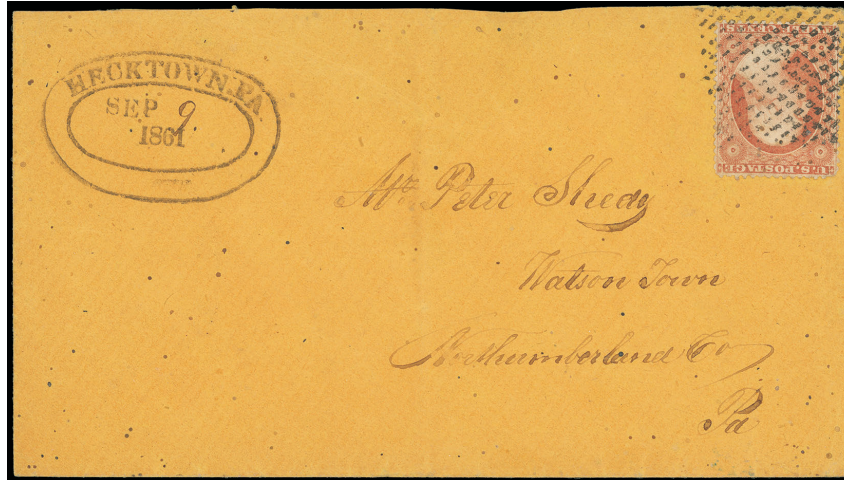 HECKTOWN.PA.
SEP 9
1861
U.S. POSTAGE
Mr. Peter
Watson Town
Northumberland Co
Pa